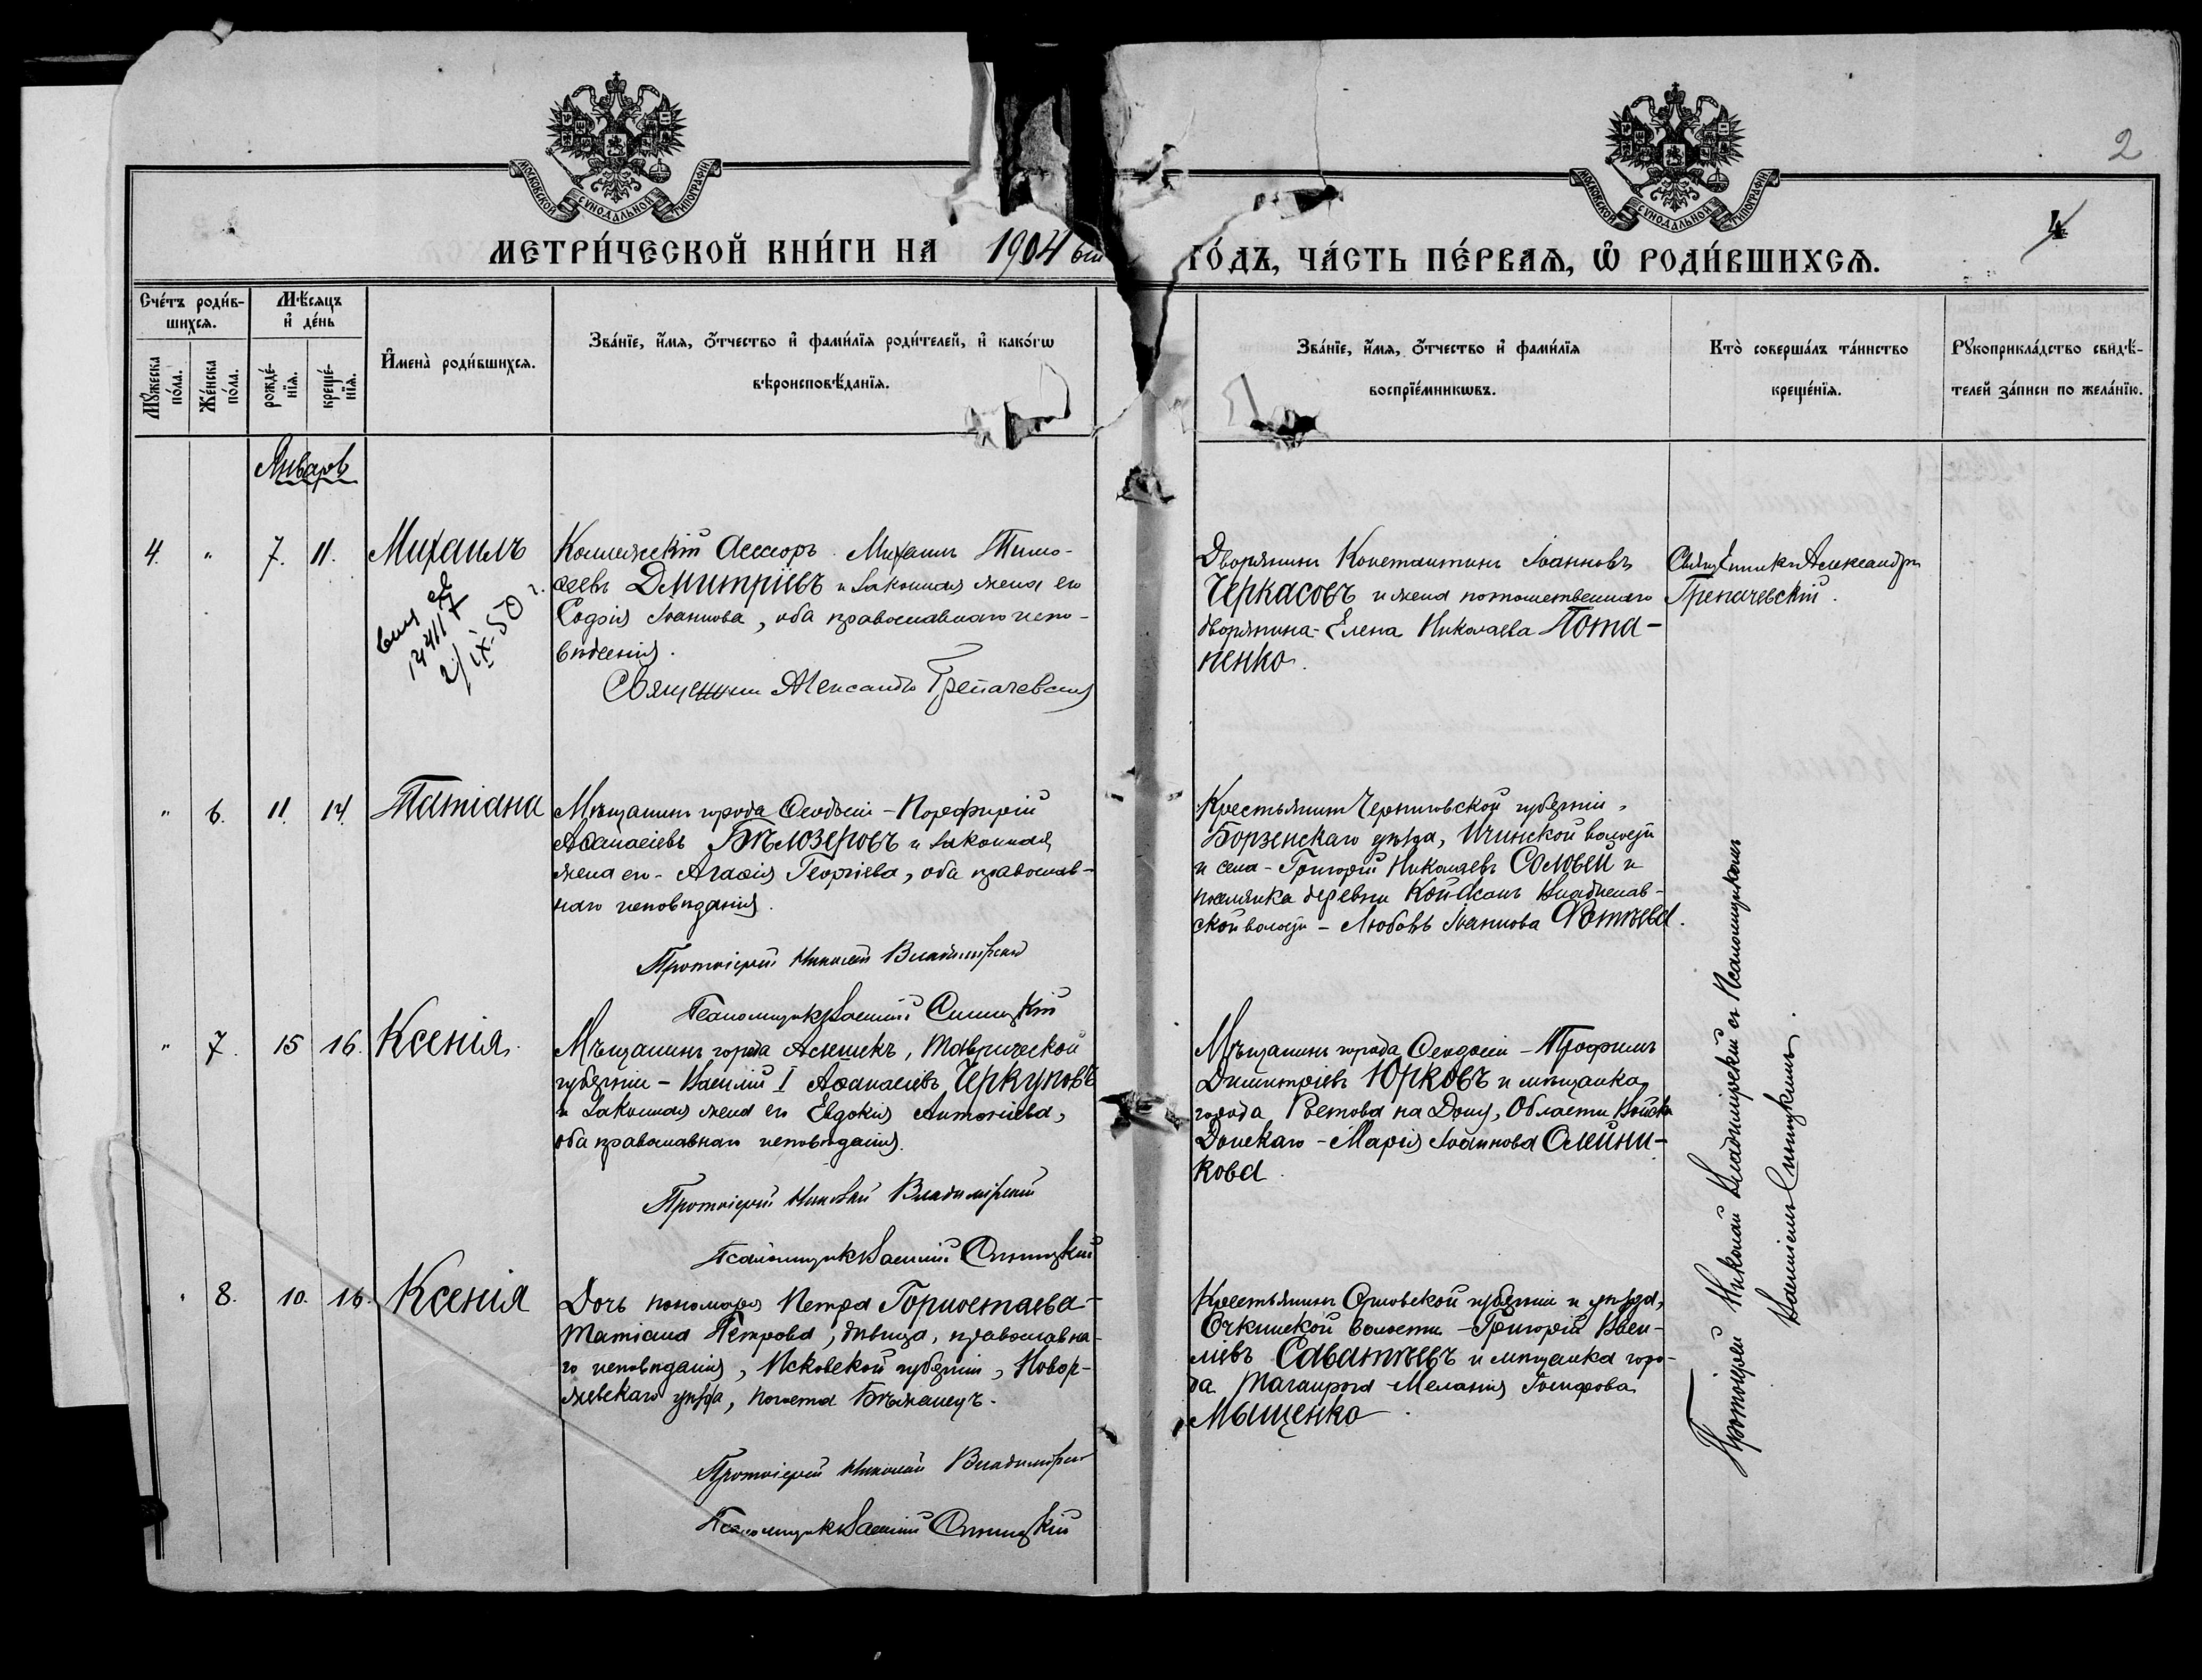 2
4
МОСКОВСКОЙ СѴНОДАЛЬНОЙ ТИПОГРАФІИ
МОСКОВСКОЙ СѴНОДАЛЬНОЙ ТИПОГРАФІИ
МЕТРИ́ЧЕСКОЙ КНИ́ГИ НА 1904 ый
ГО́ДЪ, ЧА́СТЬ ПЕ́РВАѦ, Ѡ҆ РОДИ́ВШИХСѦ.
Сче́тъ роди́в-
шихсѧ.
Мꙋ́жеска по́ла.
Же́нска по́ла.
Мѣ́сѧцъ
и҆ де́нь
рожде́-
нїѧ.
креще́-
нїѧ.
И҆мена̀ роди́вшихсѧ.
Зва́нїе, и҆́мѧ, ѻ҆́тчество и҆ фами́лїѧ роди́телей, и҆ како́гѡ
вѣроисповѣ́данїѧ.
Зва́нїе, и҆́мѧ, ѻ҆́тчество и҆ фами́лїѧ
воспрїе́мникѡвъ.
Кто̀ соверша́лъ та́инство
креще́нїѧ.
Рꙋкоприкла́дство свидѣ́-
телей за́писи по жела́нїю.
Январь
4. " 7. 11. Михаилъ
2/IX-50 г.
Коллежскій Ассесоръ Михаилъ Тимо-
ѳеевъ Дмитріевъ и законная жена его
Софія Іоаннова, оба православнаго испо-
вѣданія.
Священникъ Александръ Грепачевскій
Дворянинъ Константинъ Іоанновъ
Черкасовъ и жена потомственнаго
дворянина - Елена Николаева Пота-
пенко.
Священникъ Александръ
Грепачевскій.
" 6. 11. 14. Татіана
Мѣщанинъ города Ѳеодосіи - Порфирій
Аѳанасіевъ Бѣлозеровъ и законная
жена его - Агаѳія Георгіева, оба православ-
наго исповѣданія.
Протоіерей Николай Владимірскій
Псаломщикъ Василій Синицкій
Крестьянинъ Черниговской губерніи,
Борзенскаго уѣзда, Ичинской волости
и села - Григорій Николаевъ Соловей и
поселянка деревни Кой-Асанъ Владислав-
ской волости - Любовь Іоаннова Фотѣева.
" 7. 15 16. Ксенія.
Мѣщанинъ города Алешекъ, Таврической
губерніи - Василій I Аѳанасіевъ Черкуновъ
и законная жена его Евдокія Антоніева,
оба православнаго исповѣданія.
Протоіерей Николай Владимірскій
Псаломщикъ Василій Синицкій
Мѣщанинъ города Ѳеодосіи - Трофимъ
Димитріевъ Юрковъ и мѣщанка
города Ростова на Дону, Области Войска
Донскаго - Марія Іоаннова Олейни-
кова.
" 8. 10. 16. Ксенія
Дочь пономаря Петра Горностаева -
Татіана Петрова, дѣвица, православна-
го исповѣданія, Псковской губерніи, Новор-
жевскаго уѣзда, погоста Бѣжаницъ.
Протоіерей Николай Владимірскій
Псаломщикъ Василій Синицкій
Крестьянинъ Орловской губерніи и уѣзда,
волости - Григорій Васи-
ліевъ Саватѣевъ и мѣщанка горо-
да Таганрога - Меланія Іосифова
Мыщенко.
Протоіерей Николай Владимірскій съ Псаломщикомъ
Василіемъ Синицкимъ.